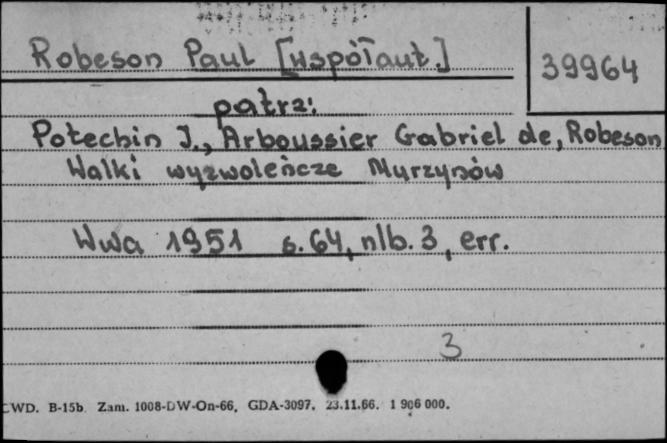 Robeson Paul [współaut.]
39964
patrz:
Potechin J., Arboussier Gabriel de, Robeson
Walki wyzwoleńcze Murzynów
Wwa 1951 s. 64, nlb. 3, err.
3
CWD. B-15b. Zam. 1008-DW-On-66. GDA-3097. 23.11.66. 1 906 000.